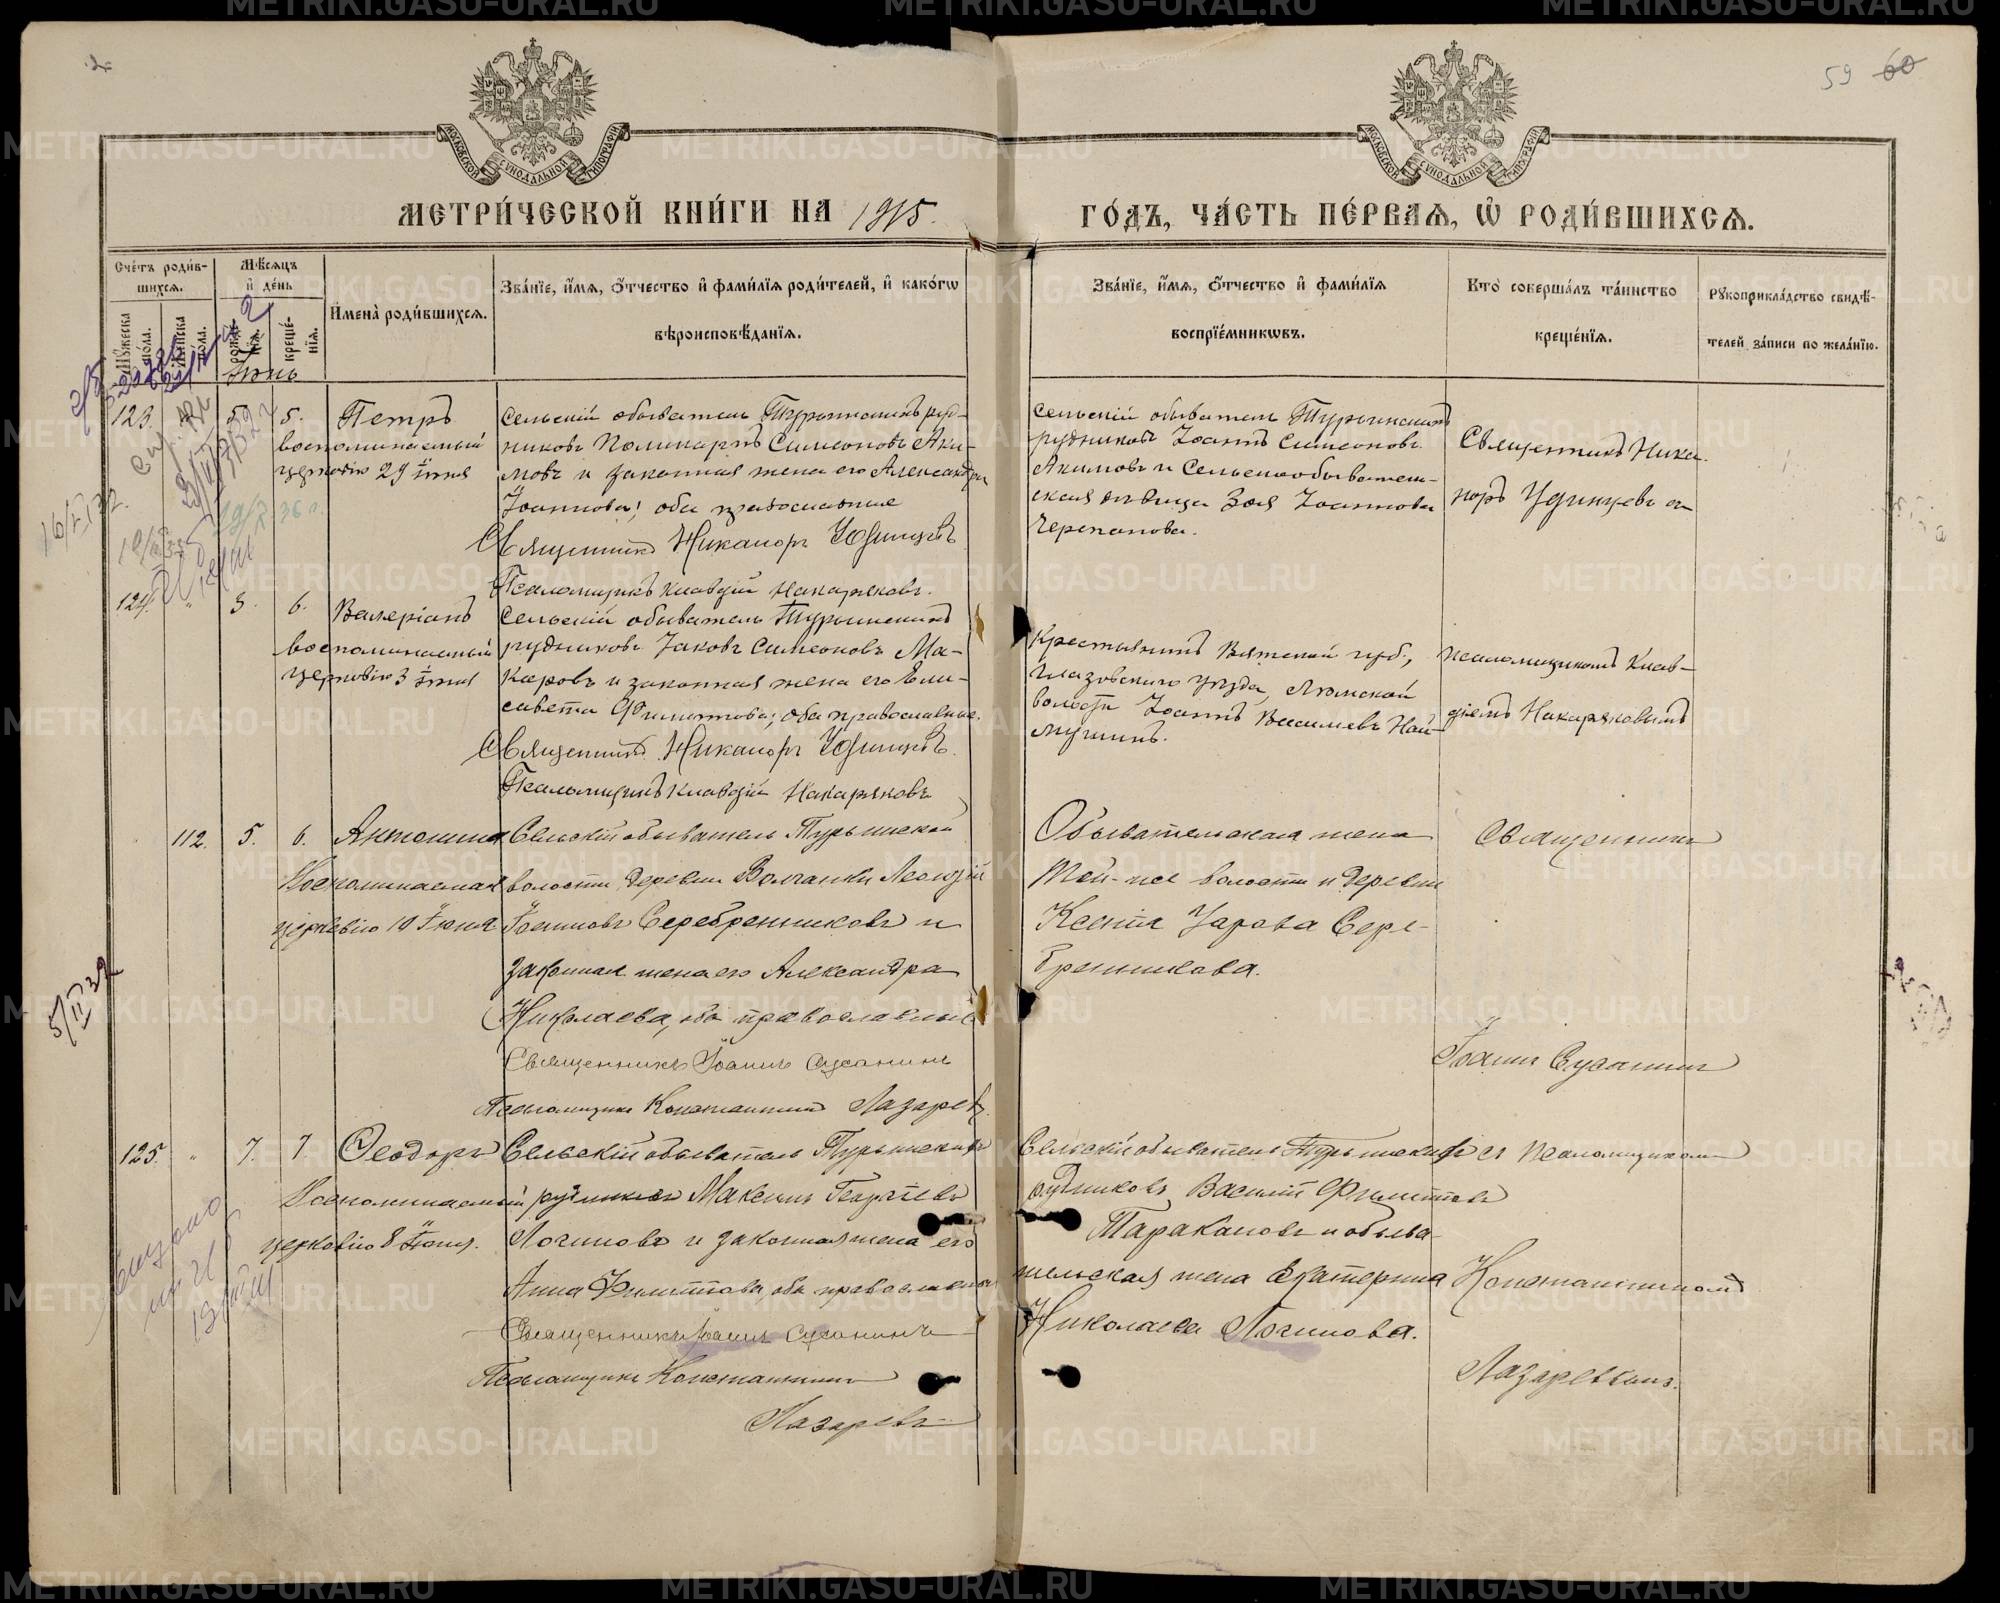 59 60
МОСКОВСКОЙ СѴНОДАЛЬНОЙ ТИПОГРАФІИ
МОСКОВСКОЙ СѴНОДАЛЬНОЙ ТИПОГРАФІИ
МЕТРИ́ЧЕСКОЙ КНИ́ГИ НА 1915.
ГО́ДЪ, ЧА́СТЬ ПЕ́РВАѦ, Ѡ҆ РОДИ́ВШИХСѦ.
Сче́тъ роди́в-
шихсѧ.
Мꙋ́жеска по́ла.
Же́нска по́ла.
Мѣ́сѧцъ
и҆ де́нь
рожде́-нїѧ.
креще́-нїѧ.
И҆мена̀ роди́вшихсѧ.
Зва́нїе, и҆́мѧ, ѻ҆́тчество и҆ фами́лїѧ роди́телей, и҆ како́гѡ
вѣроисповѣ́данїѧ.
Зва́нїе, и҆́мѧ, ѻ҆́тчество и҆ фами́лїѧ
воспрїе́мникѡвъ.
Кто̀ соверша́лъ та́инство
креще́нїѧ.
Рꙋкоприкла́дство свидѣ́-
телей за́писи по жела́нїю.
Іюнь
123. 5. 5. Петръ
воспоминаемый
церковію 29 іюня
сельскій обыватель Турьинскихъ руд-
никовъ Поликарпъ Симеоновъ Аки-
мовъ и законная жена его Александра
Іоаннова; оба православные
Священникъ Никаноръ Удинцевъ
Псаломщикъ Клавдій Накаряковъ.
сельскій обыватель Турьинскихъ
рудниковъ Іоаннъ Симеоновъ
Акимовъ и Сельскообыватель-
ская дѣвица Зоя Іоаннова
Черепанова.
Священникъ Ника-
норъ Удинцевъ съ
124. " 3. 6. Валеріанъ
воспоминаемый
церковію 3 іюня
сельскій обыватель Турьинскихъ
рудниковъ Іаковъ Симеоновъ Ма-
каровъ и законная жена его Ели-
савета Филиппова; оба православные.
Священникъ Никаноръ Удинцевъ.
Псаломщикъ Клавдій Накаряковъ
Крестьянинъ Вятской губ.,
Глазовскаго уѣзда, Люмской
волости Іоаннъ Васильевъ Най-
мушинъ.
псаломщикомъ Клав-
діемъ Накаряковымъ
112. 5. 6. Антонина
Воспоминаемая
церковію 10 Іюня
Сельскій обыватель Турьинской
волости, деревни Волчанки Леонтій
Іоанновъ Серебренниковъ и
законная жена его Александра
Николаева, оба православные
Священникъ Іоаннъ Сусанинъ
Псаломщикъ Константинъ Лазаревъ.
Обывательская жена
той-же волости и деревни
Ксенія Уарова Сере-
бренникова.
Священникъ
Іоаннъ Сусанинъ
125. " 7. 7 Ѳеодоръ
Воспоминаемый
церковію 8 Іюня.
Сельскій обыватель Турьинскихъ
рудниковъ Максимъ Георгіевъ
Логиновъ и законная жена его
Анна Филиппова, оба православные
Священникъ Іоаннъ Сусанинъ
Псаломщикъ Константинъ
Лазаревъ
Сельскій обыватель Турьинскихъ
рудниковъ Василій Филипповъ
Таракановъ и обыва-
тельская жена Екатерина
Николаева Логинова.
съ псаломщикомъ
Константиномъ
Лазаревымъ.
5/II 32
METRIKI.GASO-URAL.RU